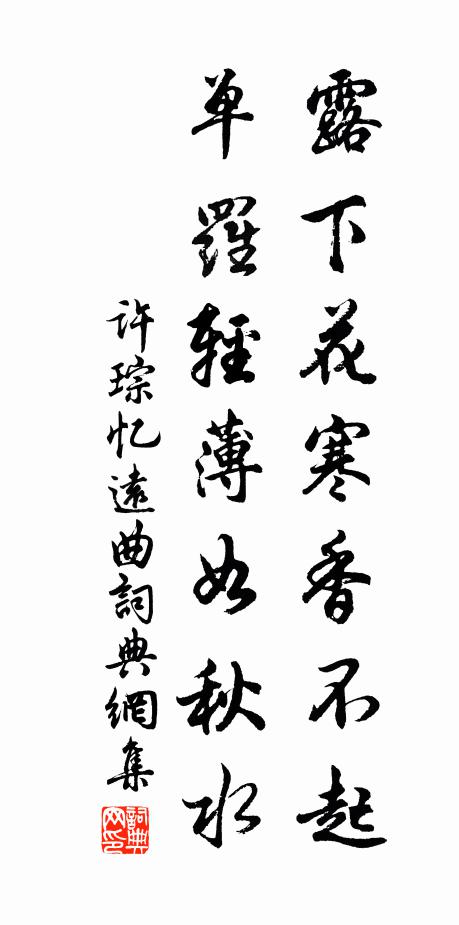 露下花寒香不起
单羅輕薄如秋水
许琮忆遠曲詞典網集
詞典网印